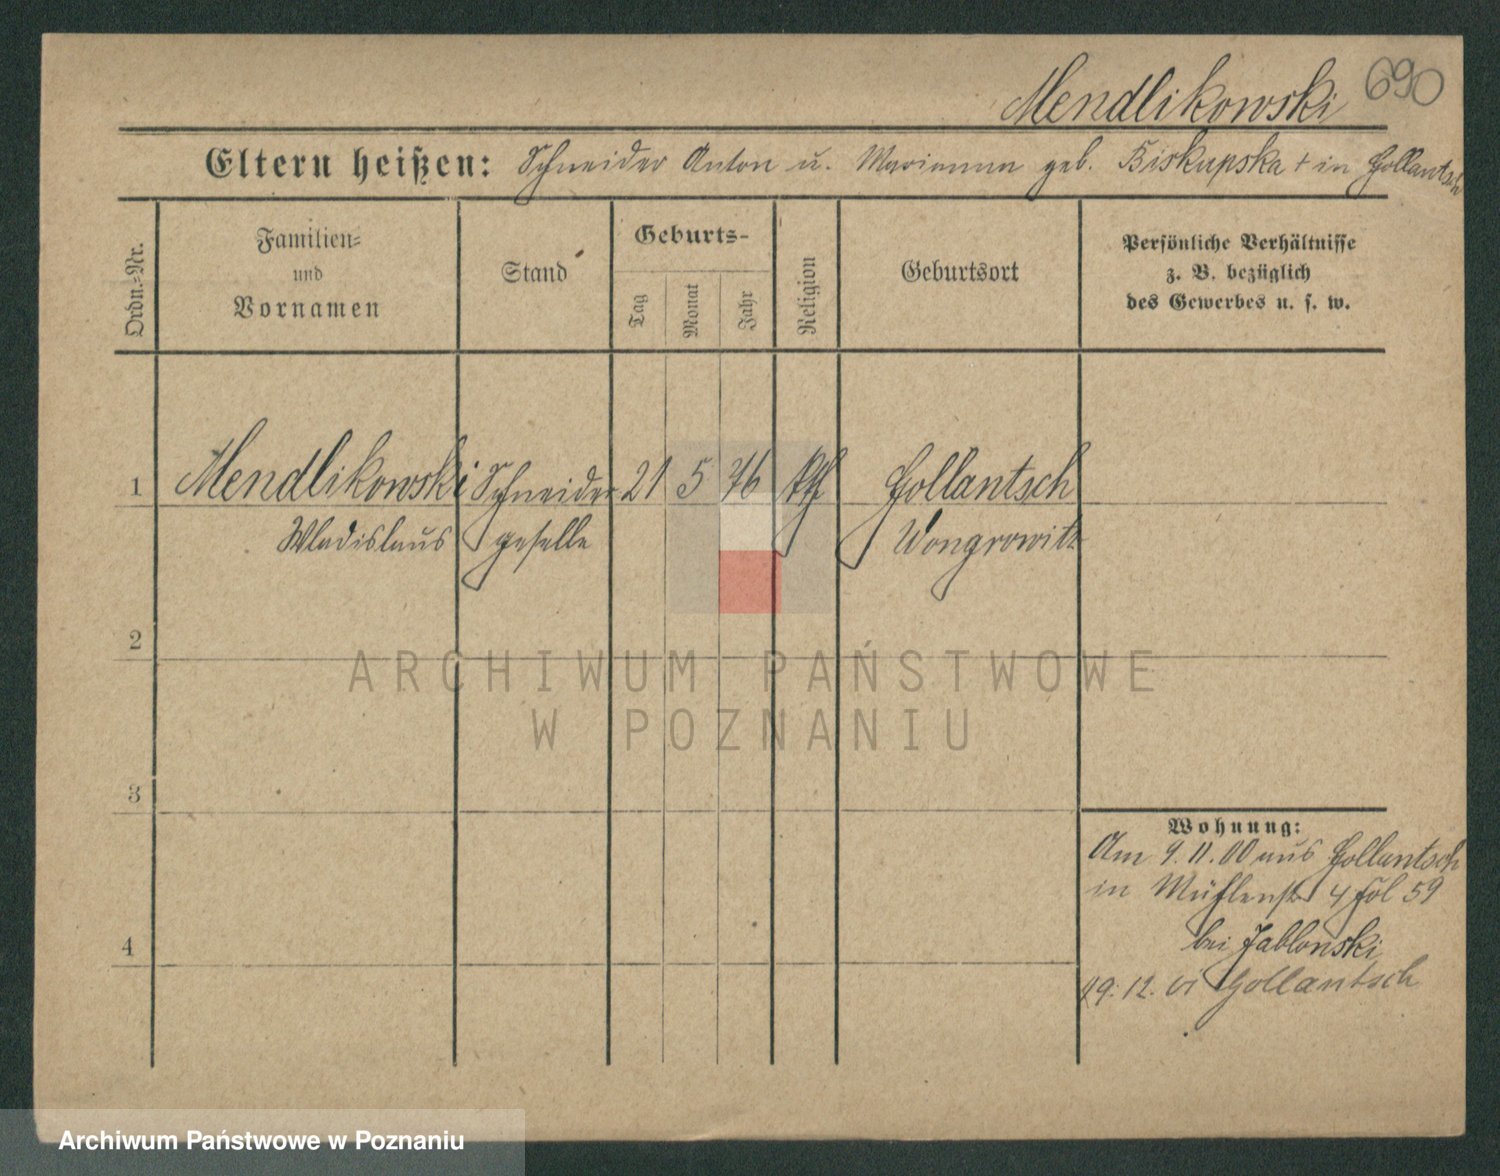 Mendlikowski 690
Eltern heißen: Schneider Anton u. Marianna geb. Biskupska + in Gollantsch
Ordn.=Nr.
Familien=
und
Vornamen
Stand
Geburts-
Tag
Monat
Jahr
Religion
Geburtsort
Persönliche Verhältnisse
z. B. bezüglich
des Gewerbes u. s. w.
1 Mendlikowski Schneider 21 5 76 kth Gollantsch
Wladislaus geselle Wongrowitz
2
ARCHIWUM PAŃSTWOWE
W POZNANIU
3
Wohnung:
Am 9.11.00 aus Gollantsch
in Mühlenstr 4 fol 59
4
bei Jablonski
29.12. 01 Gollantsch
Archiwum Państwowe w Poznaniu